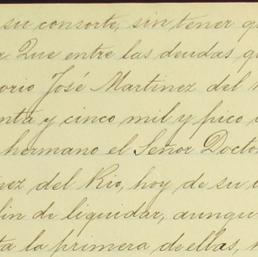 su consorte, sin tener q
Que entre las deudas q
orio José Martinez del
nta y cinco mil y pico
hermano el Señor Docto
ez del Rio, hoy de su
fin de liquidar, aunqu
ta la primera de ellas,